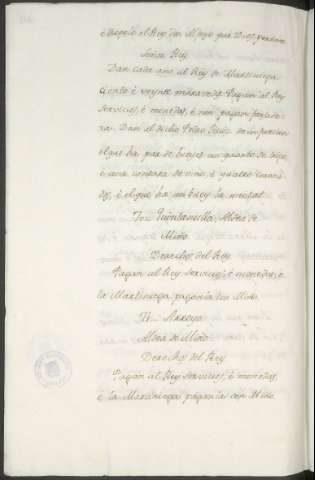 é despues el Rey don Alfonso que Dios perdone
Derechos del Rey
Dan cada año al Rey de Martiniega
ciento é veynte maravedis. Pagan al Rey
servicios, é monedas, é non pagan fonsade-
ra. Dan al dicho Pedro Ruiz de infurcion
el que ha par de bueyes un quarto de trigo
é una cantara de vino, é quatro maravedi-
s, é el que ha un buey la meytad
Tit. Quintanilla, Aldea de
Miño
Derechos del Rey
Pagan al Rey servicios, é monedas, é
la Martiniega paganla con Miño
Tit. Arroyo
Aldea de Miño
Derechos del Rey
Pagan al Rey servicios, é monedas,
é la Martiniega paganla con Miño